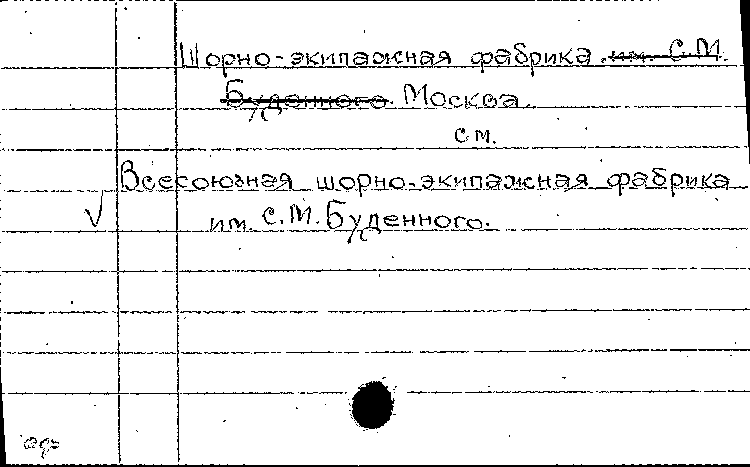 Шорно-экипажная фабрика им. С.М.
Буденного. Москва.
см.
Всесоюзная шорно-экипажная фабрика
им. С.М. Буденного.